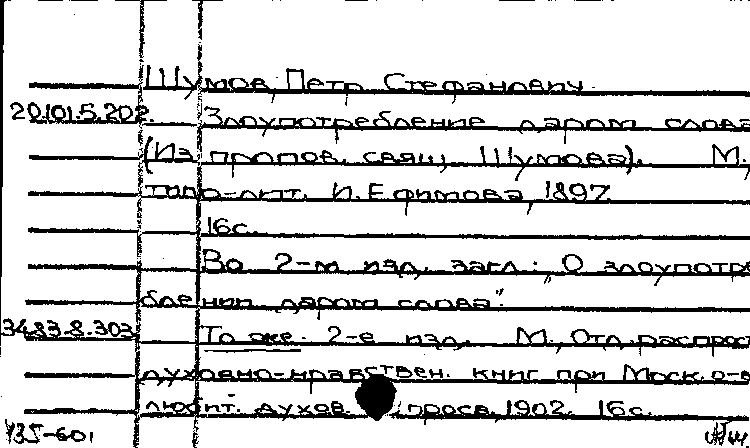 Шумов, Петр Стефанович.
20.101.5.202. Злоупотребление даром слова
(Из пропов. свящ. Шумова). М.,
типо-лит. И. Ефимова, 1897.
16с.
Во 2-м изд. загл.: „О злоупотре
блении даром слова".
34.83.8.303 То же. 2-е изд. М., Отд. распрос
духовно-нравствен. книг при Моск. о-в
любит. духов. просв., 1902. 16с.
У35-601